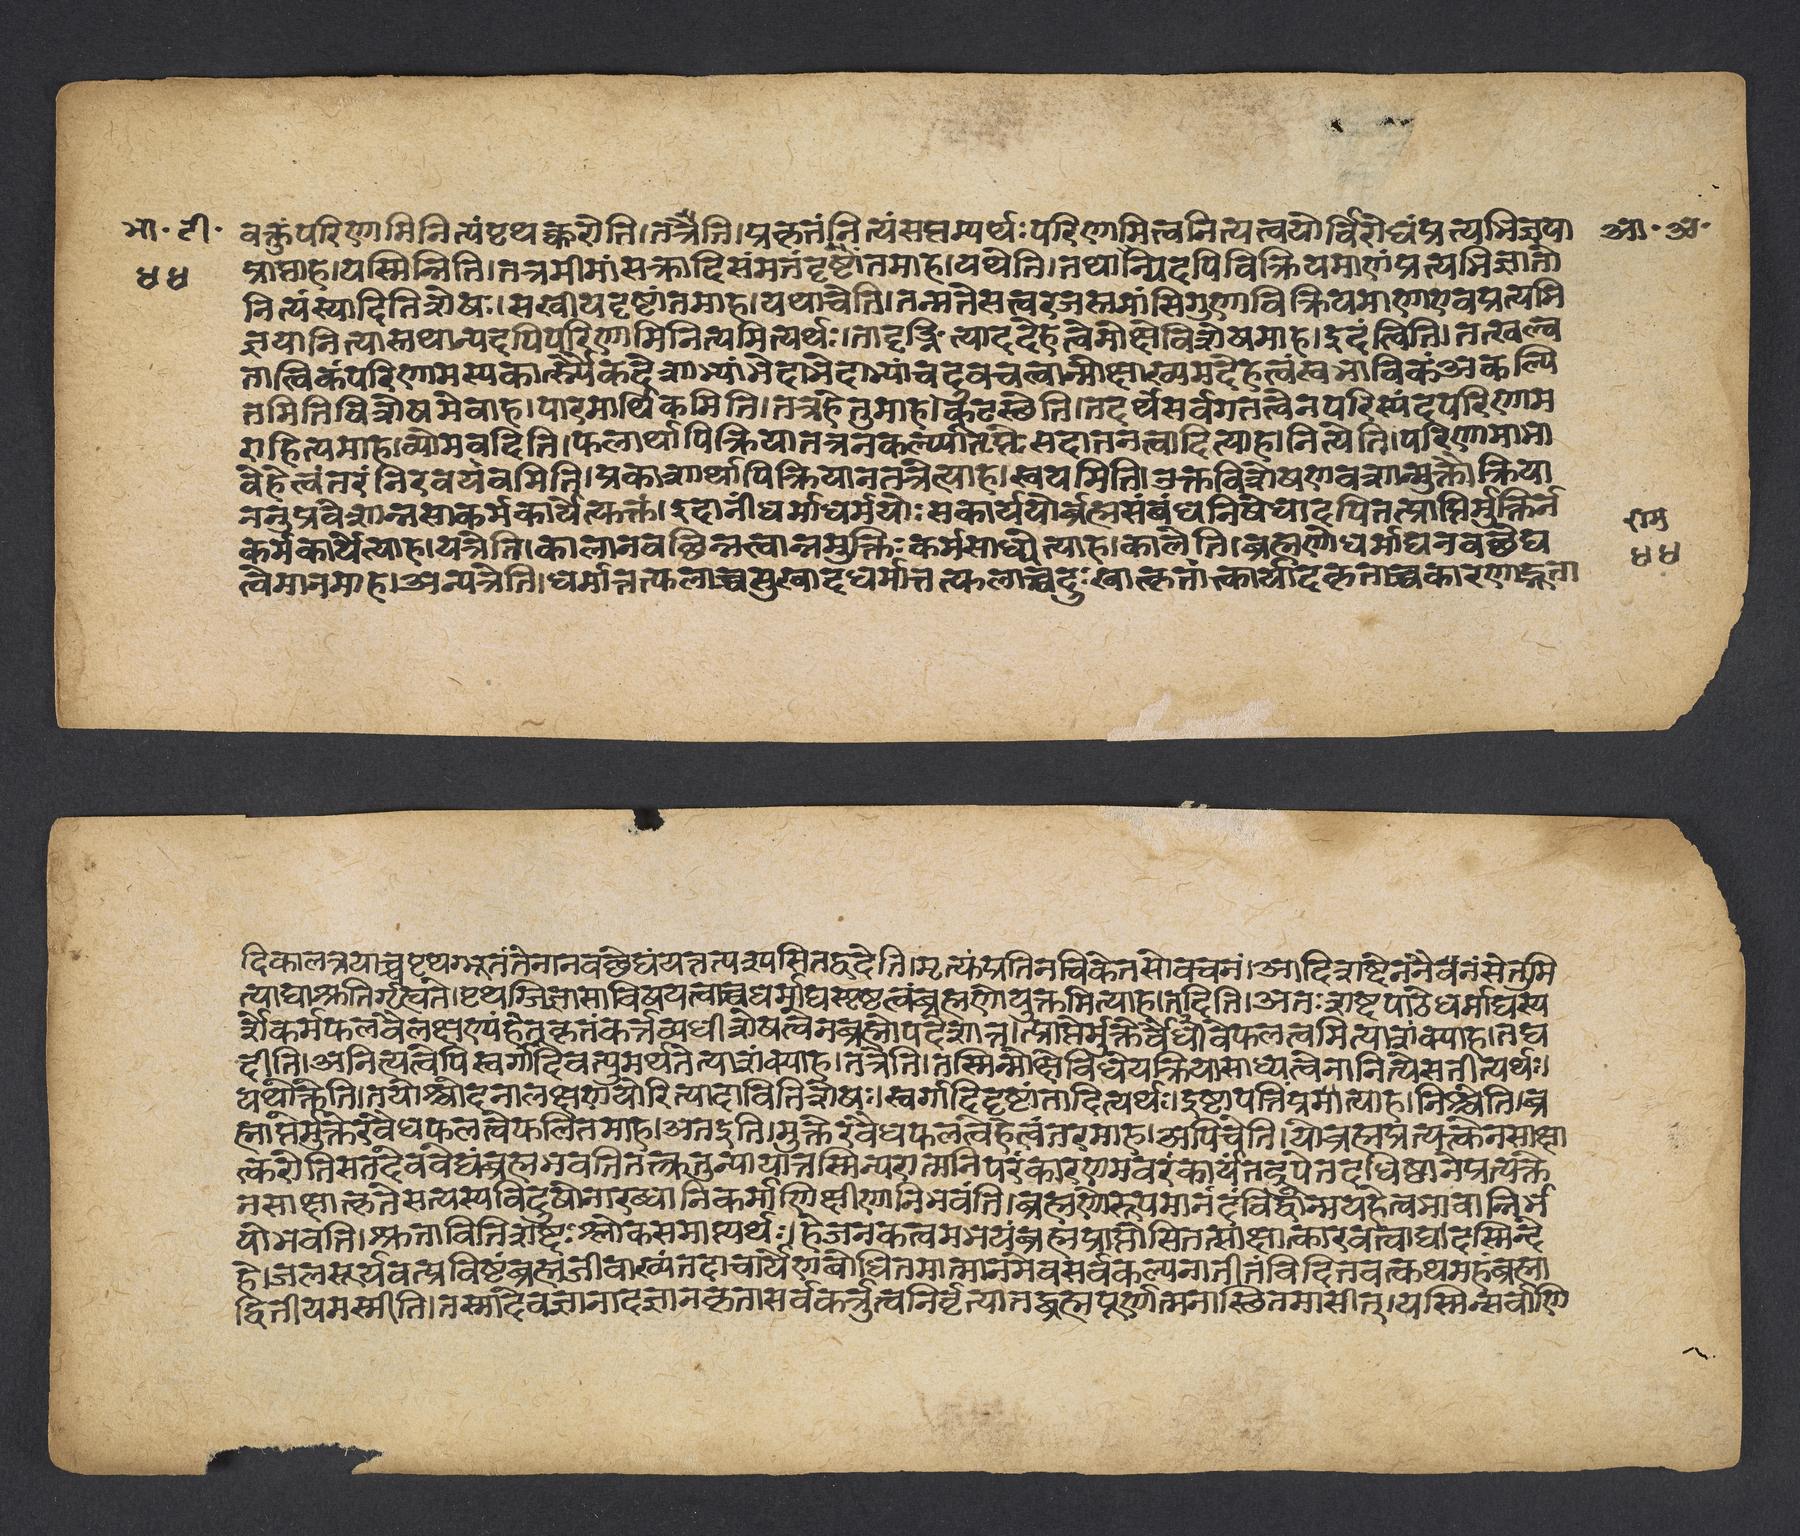 भा॰ टी॰
४४
आ॰ अ॰
राम
४४
वक्तुंपरिणामिनित्यंपृथक्करोति।तत्रेति।प्रकृतंनित्यंसप्तम्यर्थः।परिणामित्वनित्यत्वयोर्विरोधंप्रत्यभिज्ञया
प्राप्ताह।यस्मिन्निति।तत्रमीमांसकादिसंमतंदृष्टांतमाह।यथेति।तथान्यदपिविक्रियमाणंप्रत्यभिज्ञातो
नित्यंस्यादितिशेषः।सखीयदृष्टांतमाह।यथाचेति।तन्मतेसत्वरजस्तमांसिगुणाविक्रियमाणाएवप्रत्यभि
ज्ञयानित्यास्तथान्यदपिपरिणामिनित्यमित्यर्थः।तादृङ्नित्यादेहत्वेमोक्षेविशेषमाह।इदंत्विति।तत्खल्व
तात्विकंपरिणामस्यकार्त्स्न्यैकदेशाभ्यांभेदाभेदाभ्यांचदुर्वचत्वान्मोक्षाख्यमदेहत्वंस्वभाविकंअकल्पि
तमितिविशेषमेवाह।पारमार्थिकमिति।तत्रहेतुमाह।कूटस्थेति।तदर्थंसर्वगतत्वेनपरिस्पंदपरिणाम
राहित्यमाह।व्योमवदिति।फलार्थापिक्रियातत्रनकल्प्यातृप्तेःसदातनत्वादित्याह।नित्येति।परिणामाभा
वेहेत्वंतरंनिरवयवमिति।प्रकाशार्थापिक्रियानतत्रेत्याह।स्वयमिति।उक्तविशेषणवशान्मुक्तौक्रिया
ननुप्रवेशान्नसाकर्मकार्येत्युक्तं।इदानींधर्माधर्मयोःसकार्ययोर्ब्रह्मसंबंधनिषेधादपितत्प्राप्तिर्मुक्तिर्न
कर्मकार्येत्याह।यत्रेति।कालानवछिन्नत्वान्नमुक्तिःकर्मसाध्येत्याह।कालेति।ब्रह्मणोधर्माद्यनवछेद्य
त्वेमानमाह।अन्यत्रेति।धर्मात्तत्फलाच्चसुखादधर्मात्तत्फलाच्चदुःखात्कृतात्कार्यादकृताच्चकारणाद्भूता
दिकालत्रयाच्चपृथग्भूतंतेनानवछेद्यंयत्तत्पश्यसितद्वदेति।मृत्युंप्रतिनचिकेतसोवचनं।आदिशब्देननैवनंसेतुमि
त्याद्याश्रुतिर्गृह्यते।पृथग्जिज्ञासाविषयत्वाच्चधर्माद्यस्पृष्टत्वंब्रह्मणोयुक्तमित्याह।तदिति।अतःशब्दपाठेधर्माद्यस्प
र्शेकर्मफलवैलक्षण्यंहेतूकृतंकर्त्तव्यधीशेषत्वेनब्रह्मोपदेशात्त।त्प्राप्तेर्मुक्तेर्वैधधीवेफलत्वमित्याशंक्याह।तद्य
दीति।अनित्यत्वेपिस्वर्गादिवत्पुमर्थतेत्याशंक्याह।तत्रेति।तस्मिन्मोक्षेविधेयक्रियासाध्यत्वेनानित्येसतीत्यर्थः।
यथोक्तेति।तयोश्चोदनालक्षणयोरित्यादावितिशेषः।स्वर्गादिदृष्टांतादित्यर्थः।इष्टापत्तिंप्रमात्याह।नित्यश्चेति।ब्र
ह्माप्तेर्मुक्तेरवैधफलत्वेफलितमाह।अतइति।मुक्तेरवैधफलत्वेहेत्वंतरमाह।अपिचेति।योब्रह्मप्रत्यक्त्वेनसाक्षा
त्करोतिसतदेववेद्यंब्रह्मभवतितत्क्रतुन्यायात्तस्मिन्परात्मनिपरंकारणमवरंकार्यंतद्रूपेतदधिष्ठानेप्रत्यक्त्वे
नसाक्षात्कृतेसत्यस्यविदुषोनारब्धानिकर्माणिक्षीणानिभवंति।ब्रह्मणोरूपमानंदंविद्वान्भयहेत्वभावान्निर्भ
योभवति।श्रुतावितिशब्दःश्लोकसमाप्त्यर्थः।हेजनकत्वमभयंब्रह्मप्राप्तोसितत्साक्षात्कारवत्वाद्यादस्मिन्दे
हे।जलसूर्यवत्प्रविष्टंब्रह्मजीवाख्यंतदाचार्येणबोधितमात्मानमेवसर्वकल्पनातीतंविदितवत्कथमहंब्रह्मा
द्वितीयमस्मीति।तस्मादेवज्ञानादज्ञानकृतासर्वकर्तृत्वनिर्वृत्त्यातद्ब्रह्मपूर्णात्मनास्थितमासीत्।यस्मिन्सर्वाणि